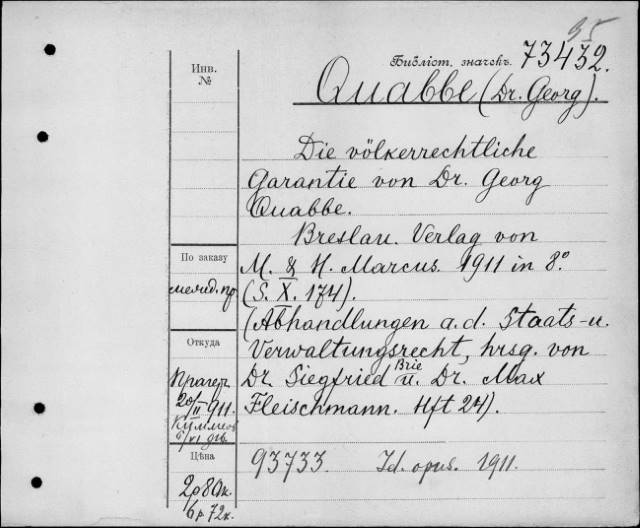 35
Библіот. значекъ. 73432.
Инв.
№
Quabbe (Dr. Georg).
Die völkerrechtliche
Garantie von Dr. Georg
Quabbe.
Breslau. Verlag von
По заказу
M. & H. Marcus. 1911 in 8°
(S. X. 174).
(Abhandlungen a.d. Staats-u.
Откуда
Verwaltungsrecht, hrsg. von
Dr. Siegfried Brie u. Dr. Max
Прагер
20/II 911.
Fleischmann. Hft 24).
Цѣна
93733. Id. opus. 1911.
2р 80к.
6р 72к.